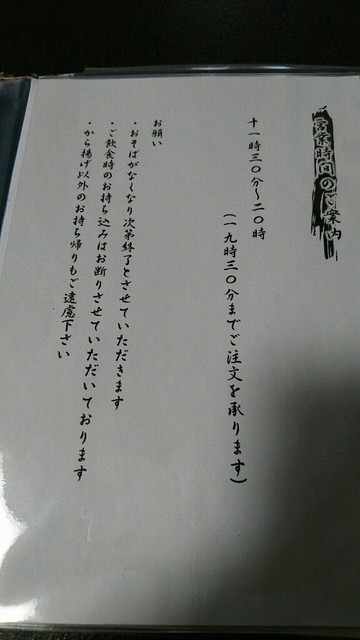 営業時間のご案内
十一時三〇分～二〇時
(一九時三〇分までご注文を承ります)
お願い
・おそばがなくなり次第終了とさせていただきます
・ご飲食時のお持ち込みはお断りさせていただいております
・から揚げ以外のお持ち帰りもご遠慮下さい